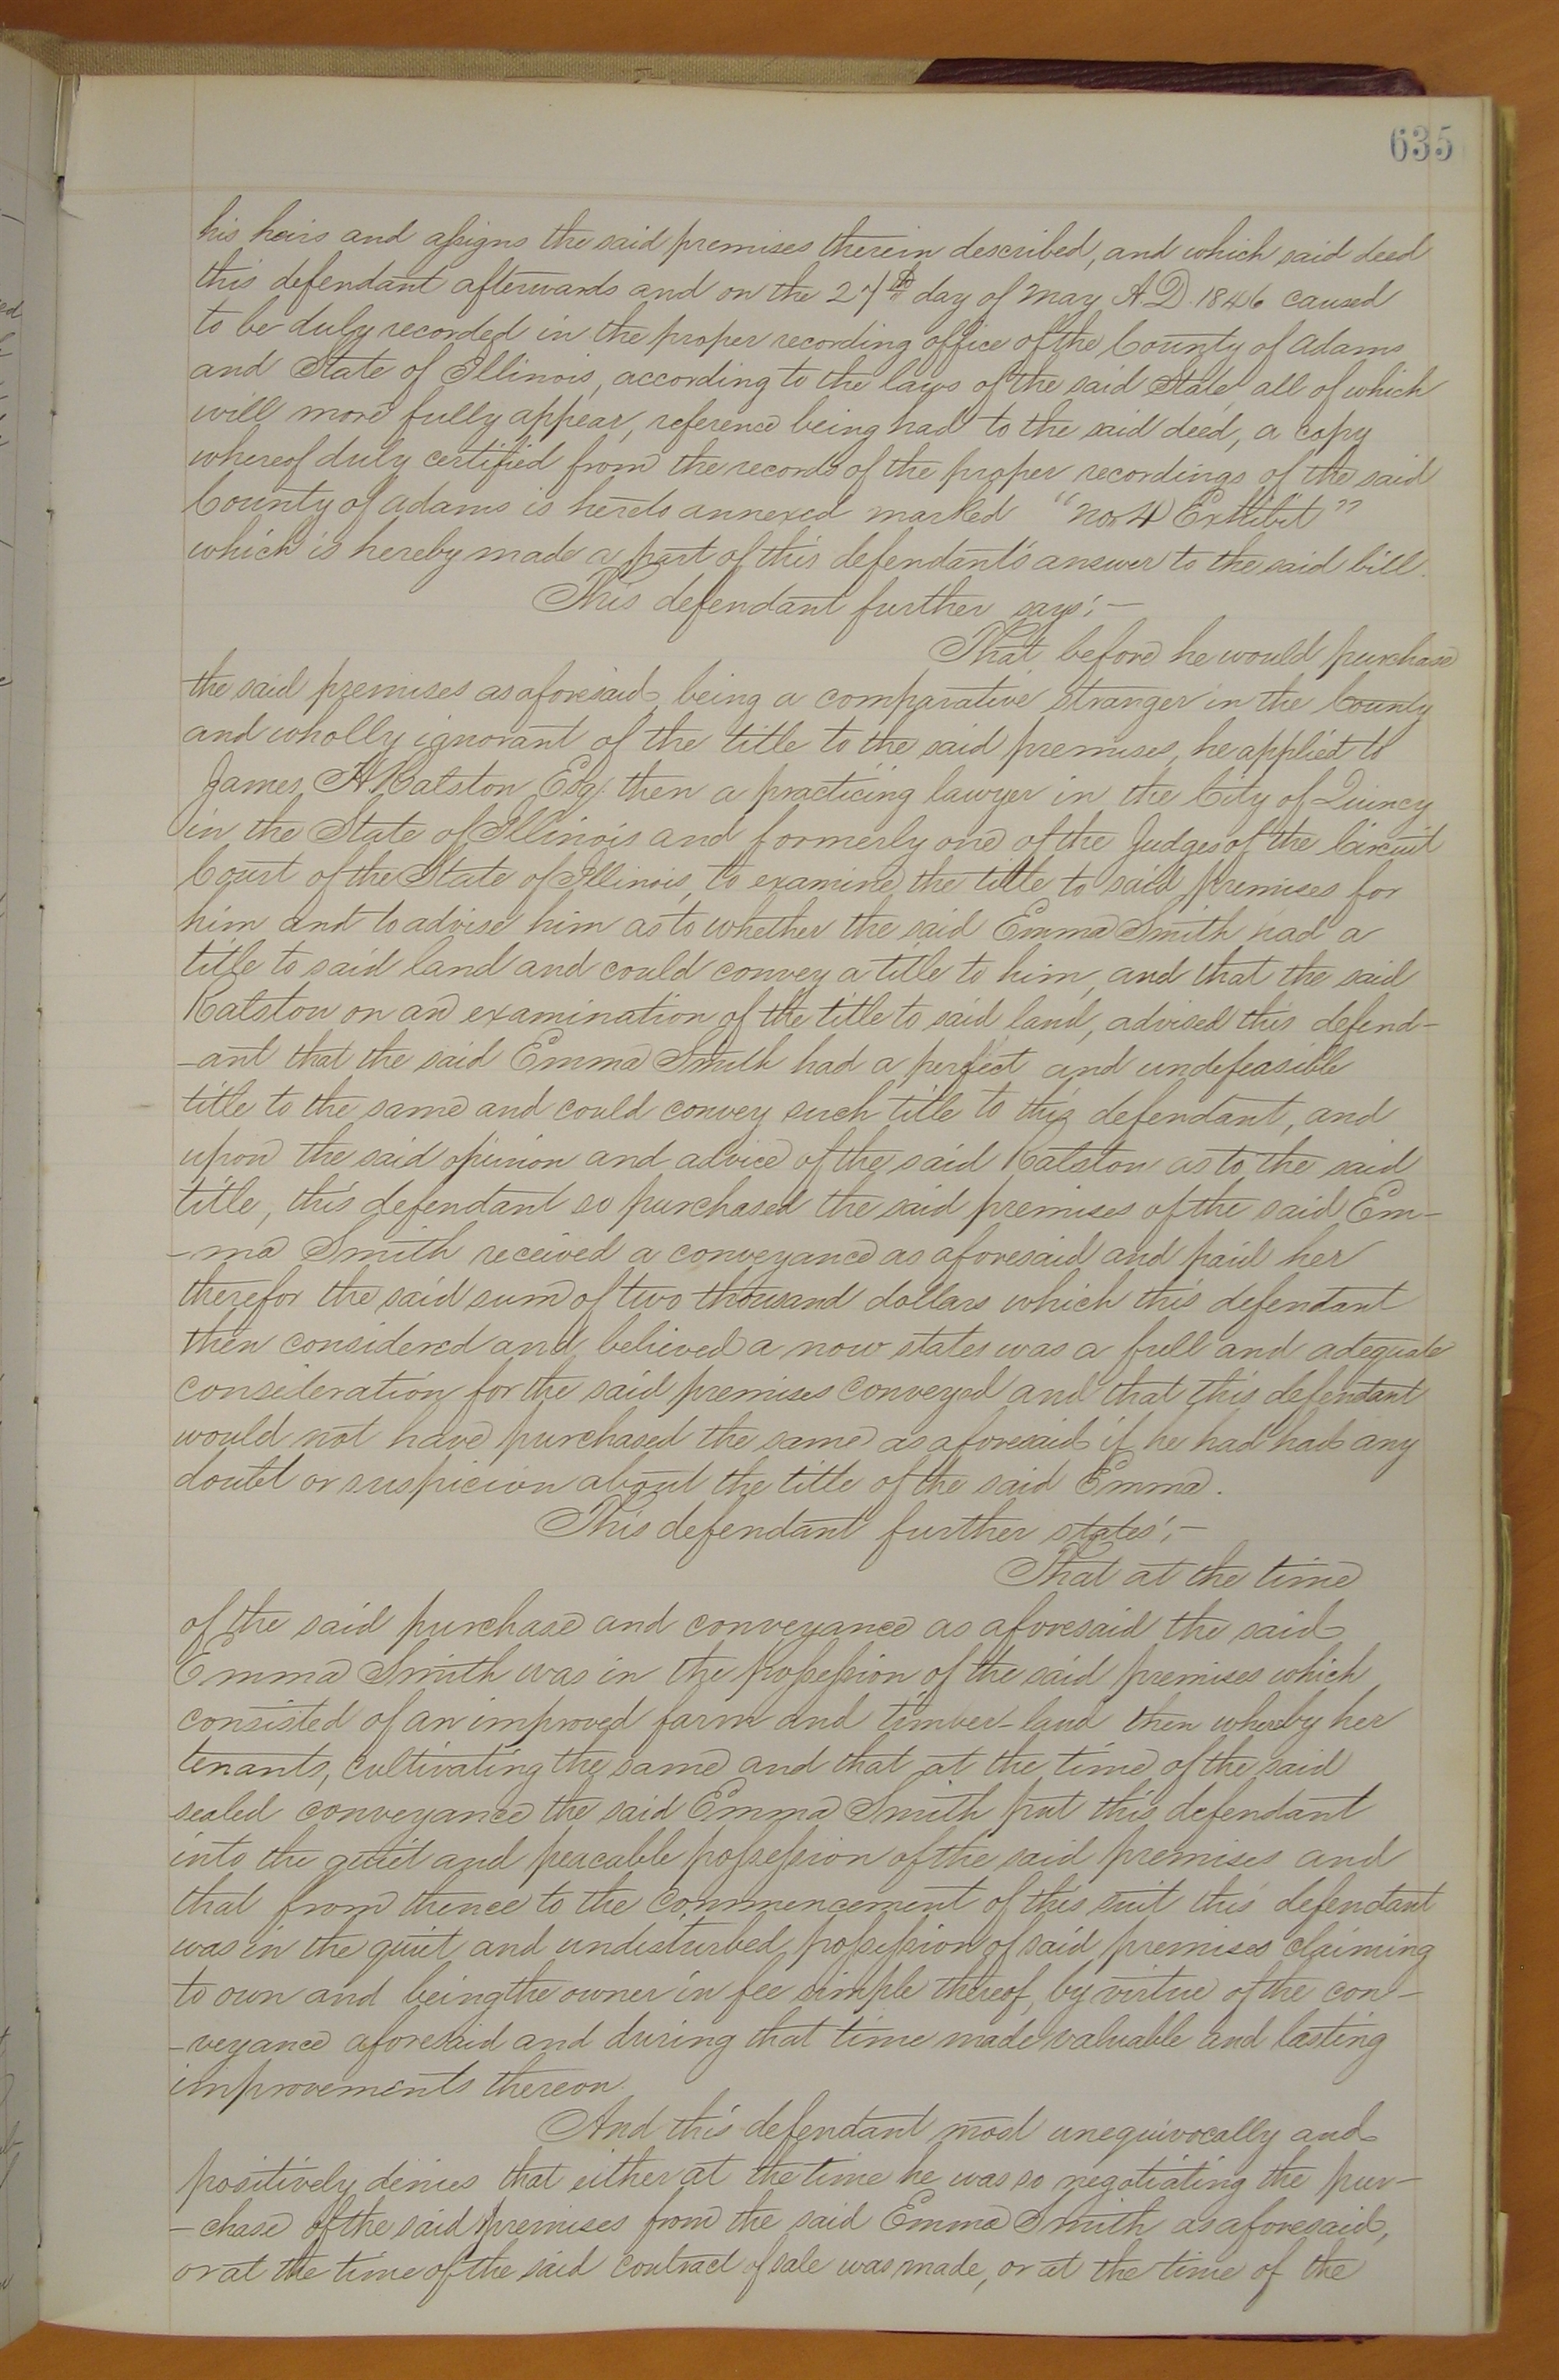 635
his heirs and assigns the said premises therein described, and which said deed
this defendant afterwards and on the 27th day of May A.D. 1846 caused
to be duly recorded in the proper recording office of the County of Adams
and State of Illinois, according to the laws of the said State all of which
will more fully appear, reference being had to the said deed, a copy
whereof duly certified from the records of the proper recordings of the said
County of Adams is hereto annexed marked "No 4 Exhibit"
which is hereby made a part of this defendant's answer to the said bill.
This defendant further says;—
That before he would purchase
the said premises as aforesaid, being a comparative stranger in the County
and wholly ignorant of the title to the said premises, he applied to
James H Ralston Esq. then a practicing lawyer in the City of Quincy
in the State of Illinois and formerly one of the Judges of the Circuit
Court of the State of Illinois, to examine the title to said premises for
him and to advise him as to whether the said Emma Smith had a
title to said land and could convey a title to him, and that the said
Ralston on an examination of the title to said land, advised this defend-
-ant that the said Emma Smith had a perfect and undefeasible
title to the same and could convey such title to this defendant, and
upon the said opinion and advice of the said Ralston as to the said
title, this defendant so purchased the said premises of the said Em-
-ma Smith received a conveyance as aforesaid and paid her
therefor the said sum of two thousand dollars which this defendant
then considered and believed a now states was a full and adequate
consideration for the said premises conveyed and that this defendant
would not have purchased the same as aforesaid if he had had any
doubt or suspicion about the title of the said Emma.
This defendant further states;—
That at the time
of the said purchase and conveyance as aforesaid the said
Emma Smith was in the possession of the said premises which
consisted of an improved farm and timber-land then whereby her
tenants, cultivating the same and that at the time of the said
sealed conveyance the said Emma Smith put this defendant
into the quiet and peacable possession of the said premises and
that from thence to the commencement of this suit this defendant
was in the quiet and undisturbed possession of said premises claiming
to own and being the owner in fee simple thereof, by virtue of the con-
-veyance aforesaid and during that time made valuable and lasting
improvements thereon.
And this defendant most unequivocally and
positively denies that either at the time he was so negotiating the pur-
-chase of the said premises from the said Emma Smith as aforesaid,
or at the time of the said contract of sale was made, or at the time of the